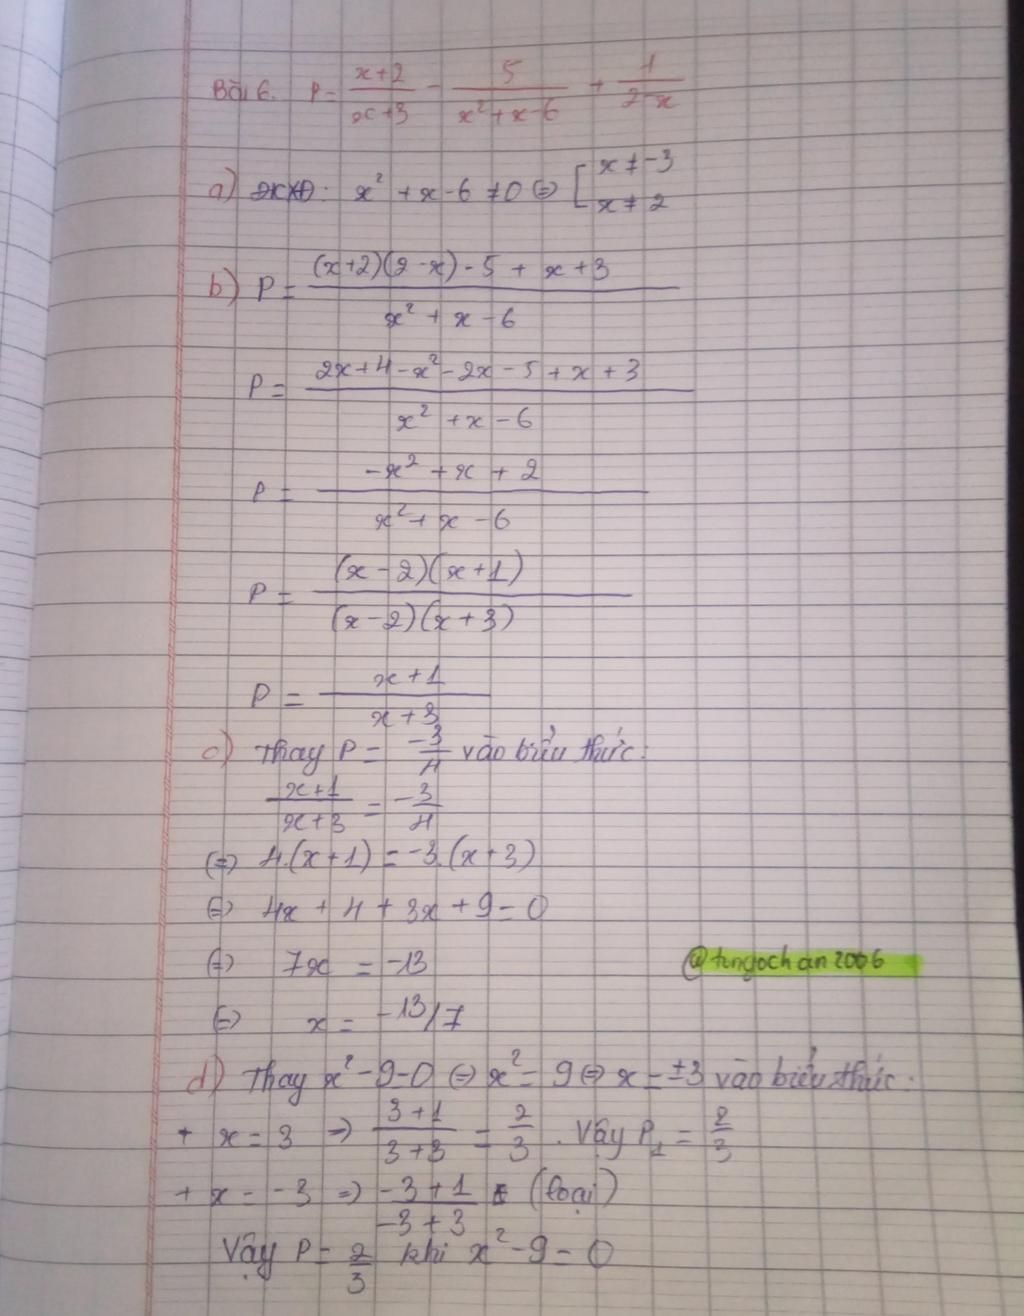 Bài 6. P = \frac{x+2}{x+3} - \frac{5}{x^2+x-6} + \frac{1}{2-x}
a) ĐKXĐ: x² + x - 6 ≠ 0 ⇔ [ x ≠ -3
x ≠ 2
b) P = \frac{(x+2)(2-x) - 5 + x + 3}{x^2 + x - 6}
P = \frac{2x+4-x^2-2x-5+x+3}{x^2+x-6}
P = \frac{-x^2+x+2}{x^2+x-6}
P = \frac{(x-2)(x+1)}{(x-2)(x+3)}
P = \frac{x+1}{x+3}
c) Thay P = \frac{-3}{4} vào biểu thức:
\frac{x+1}{x+3} = -\frac{3}{4}
⇔ 4.(x+1) = -3.(x+3)
⇔ 4x + 4 + 3x + 9 = 0
⇔ 7x = -13
@tungochan2006
⇔ x = -13/7
d) Thay x² - 9 = 0 ⇔ x² = 9 ⇔ x = ±3 vào biểu thức:
+ x = 3 ⇒ \frac{3+1}{3+3} = \frac{2}{3}. Vậy P₁ = \frac{2}{3}
+ x = -3 ⇒ \frac{-3+1}{-3+3} (loại)
Vậy P = \frac{2}{3} khi x² - 9 = 0